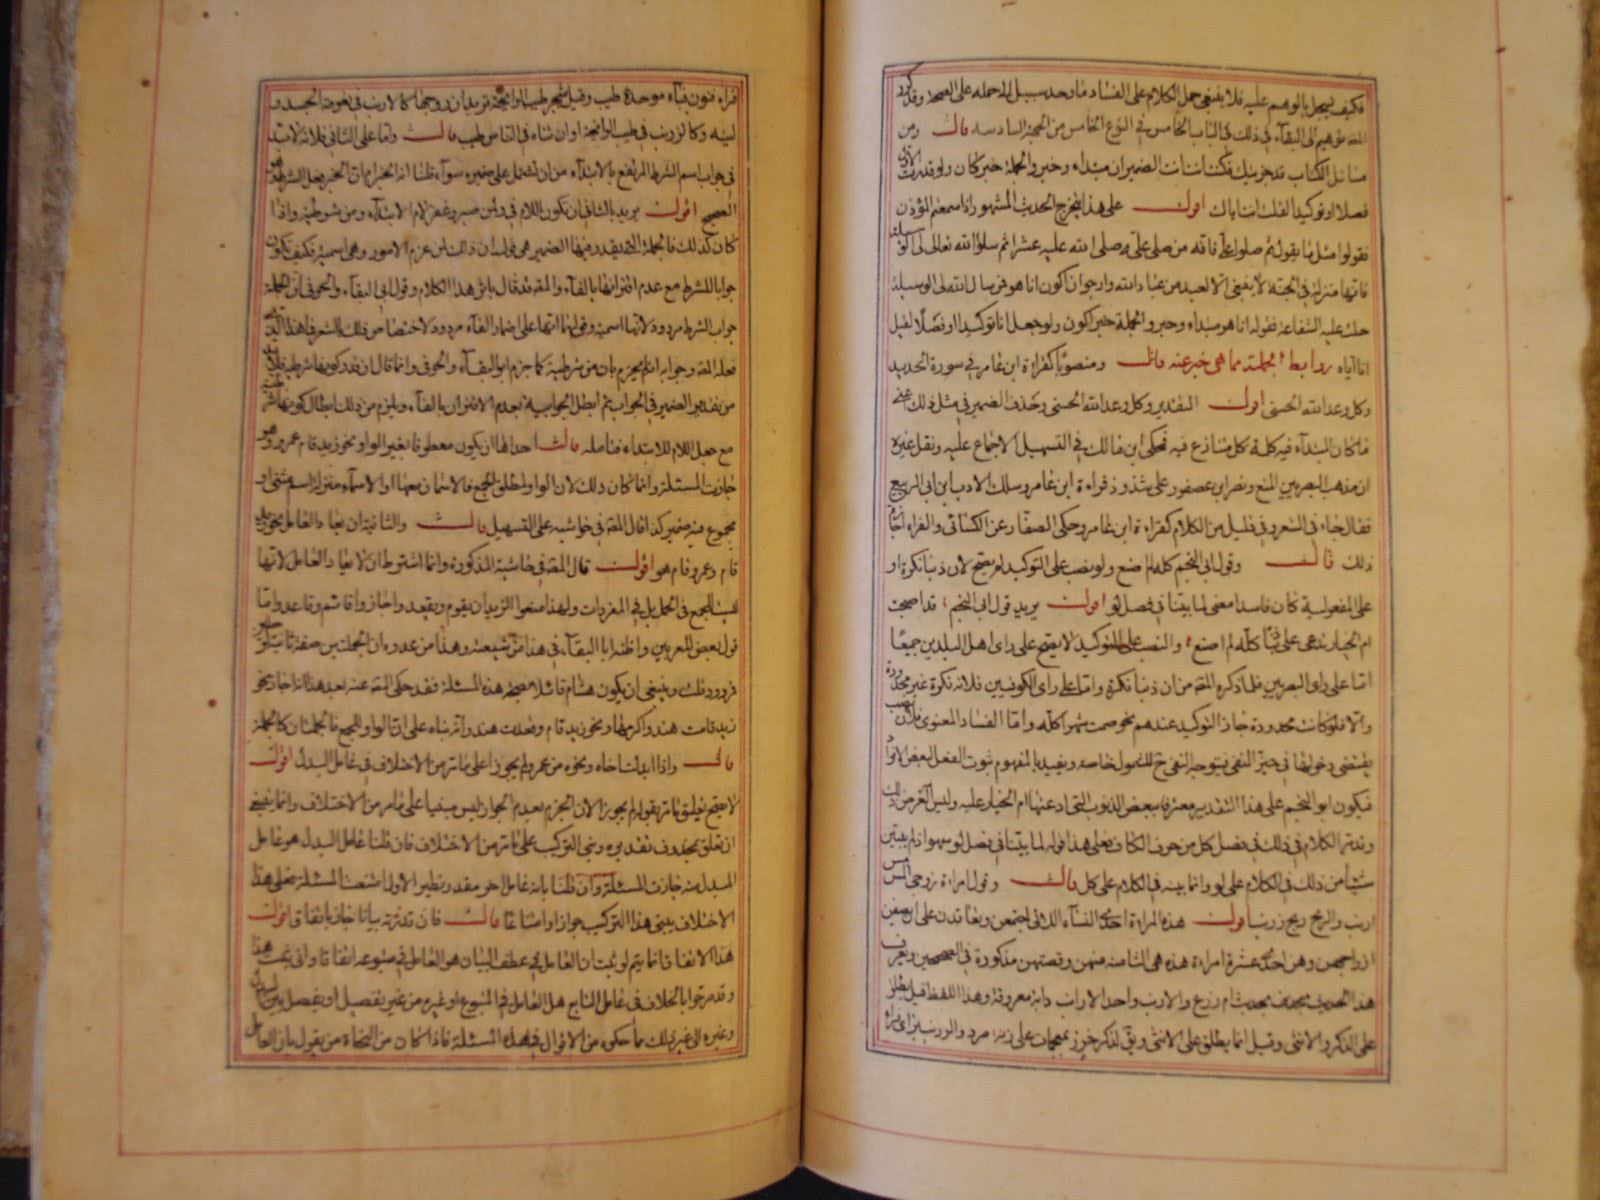 فكيف يسجل بالوهم عليه فلا ينبغي حمل الكلام على الفساد ما وجد سبيل الى حمله على الصحة وقد
توهيم ابي البقاء في ذلك في الباب الخامس في النوع الخامس من الجهة السادسة قال ومن
مسائل الكتاب قد جربتك فكنت انت انت الضميران مبتداء وخبر والجملة خبر كان ولو قدرت الاول
فصلا او توكيدا لقلت انت اياك اقول على هذا يتخرج الحديث المشهور اذا سمعتم المؤذن
فقولوا مثل ما يقول ثم صلوا علي فانه من صلى علي مرة صلى الله عليه عشرا ثم سلوا الله تعالى لي الوسيلة
فانها منزلة في الجنة لا ينبغي الا لعبد من عباد الله وارجو ان اكون انا هو فمن سأل الله لي الوسيلة
حلت عليه الشفاعة فقوله انا هو مبتداء وخبر والجملة خبر اكون ولو جعل انا توكيدا او فصلا لقيل
انا اياه روابط الجملة بما هي خبر عنه قال ومنصوبا كقراءة ابن عامر في سورة الحديد
وكل وعد الله الحسنى اقول التقدير وكل وعده الله الحسنى وحذف الضمير في مثل ذلك اعني
ما كان المبتداء فيه كلمة كل متنازع فيه فحكى ابن مالك في التسهيل الاجماع عليه ونقل غيره
ان مذهب البصريين المنع ونص ابن عصفور على شذوذ قراءة ابن عامر وسلك الادب ابن ابي الربيع
فقال جاء في الشعر وفي قليل من الكلام كقراءة ابن عامر وحكى الصفار عن الكسائي والفراء اجازة
ذلك قال وقول ابي النجم كله لم اصنع ولو نصب على التوكيد لم يصح لان ذنبا نكرة او
على المفعولية كان فاسدا معنى لما بيناه في فصل كل اقول يريد قول ابي النجم قد اصبحت
ام الخيار تدعي علي ذنبا كله لم اصنع والنصب على التوكيد لا يصح على راى اهل البلدين جميعا
اما على راى البصريين فلما ذكره المصنف من ان ذنبا نكرة واما على راى الكوفيين فلانه نكرة غير محدودة
والا فلو كانت محدودة جاز التوكيد عندهم نحو صمت شهرا كله واما الفساد المعنوي فلان النصب
يقتضي دخولها في حيز النفي فيتوجه النفي ح للشمول خاصة ويفيد بالمفهوم ثبوت الفعل لبعض الافراد
فيكون ابو النجم على هذا التقدير معترفا ببعض الذنوب التي ادعتها ام الخيار عليه وليس الغرض ذلك
وقد مر الكلام في ذلك في فصل كل من حرف الكاف فعلى هذا قوله لما بيناه في فصل لو سهو اذ لم يبين
شيئا من ذلك في الكلام على لو وانما بينه في الكلام على كل قال وقول امراة زوجي المس مس
ارنب والريح ريح زرنب اقول هذه المراة احدى النساء اللاتي اجتمعن وتعاقدن على ان يصفن
ازواجهن وهن احدى عشرة امراة هذه هي الثامنة منهن وقصتهن مذكورة في الصحيحين ويعرف
هذا الحديث بحديث ام زرع والارنب واحد الارانب دابة معروفة وهذا اللفظ قيل يطلق
على الذكر والانثى وقيل انما يطلق على الانثى ويق للذكر خزز بمعجمات على زنة صرد والزرنب بزاى فراء
فراء فنون فباء موحدة طيب وقيل شجر طيب الرائحة تريد ان زوجها كالارنب في نعومة الجسد و
لينه وكالزرنب في طيب الرائحة او ان ثناه في الناس طيب قال واما على الثاني فلانه لا بد
في جواب اسم الشرط المرتفع بالابتداء من ان يشتمل على ضميره سواء قلنا انه الخبر ام ان الخبر فعل الشرط وهو
الصحيح اقول يريد بالثاني ان تكون اللام في ولمن صبر وغفر لام الابتداء ومن شرطية واذا
كان كذلك فالجملة التي يقدر فيها الضمير هي قوله ان ذلك لمن عزم الامور وهي اسمية فكيف تكون
جوابا للشرط مع عدم اقترانها بالفاء والمصنف قد قال باثر هذا الكلام وقول ابي البقاء والحوفي ان الجملة
جواب الشرط مردود لانها اسمية وقولهما انها على اضمار الفاء مردود لاختصاص ذلك بالشعر فما هذا الذي
فعله المصنف وجوابه انه لم يجزم بان من شرطية كما جزم ابو البقاء والحوفي وانما قال ان قدر كونها شرطية فلا بد
من تقدير الضمير في الجواب ثم ابطل الجوابية بعدم الاقتران بالفاء ويلزم من ذلك ابطال كونها شرطية
مع جعل اللام للابتداء فتأمله قال احدها ان يكون معطوفا بغير الواو نحو زيد قام عمرو وهو
جازت المسئلة وانما كان ذلك لان الواو لمطلق الجمع فالاسمان معها او الاسماء بمنزلة اسم مثنى او
مجموع فيه ضمير كذا قال المصنف في حواشيه على التسهيل قال والثانية ان يعاد العامل نحو زيد
قام وعمرو قام هو اقول قال المصنف في حاشيته المذكورة وانما اشترط ان لا يعاد العامل لانها
ليست للجمع في الجمل بل في المفردات ولهذا منعوا الزيدان يقوم ويقعد واجازوا قائم وقاعد واما
قول بعض المعربين واظنه ابا البقاء في هذا من شيعته وهذا من عدوه ان الجملتين صفة ثانية لرجلين
فمردود قلت وينبغي ان يكون هشام قائلا بصحة هذه المسئلة فقد حكى المصنف عنه بعد هذا انه اجاز نحو
زيد قامت هند واكرمها ونحو زيد قام وقعدت هند وانه بناه على ان الواو للجمع فالجملتان كالجملة
قال واذا ابدلت اخاه ونحوه من عمرو لم يجوز اعلى ما مر من الاختلاف في عامل البدل اقول
لا يصح تعليق ما مر بقوله لم يجوزا لان الجزم بعدم الجواز ليس مبنيا على ما مر من الاختلاف وانما ينبغي
ان تعلق بمحذوف تقديره ونبني التركيب على ما مر من الاختلاف فان قلنا عامل البدل هو عامل
المبدل منه جازت المسئلة وان قلنا بانه عامل اخر مقدر نظير الاول امتنعت المسئلة فعلى هذا
الاختلاف يبنى هذا التركيب جوازا وامتناعا قال فان قدرته بيانا جاز باتفاق اقول
هذا الاتفاق انما يتم لو ثبت ان العامل في عطف البيان هو العامل في متبوعه اتفاقا وانى يثبت هذا
وقد صرحوا بالخلاف في عامل التابع هل العامل في المتبوع او غيره من غير تفصيل او بفصل بين البدل
وغيره الى غير ذلك مما حكوه من الاقوال قبل هذه المسئلة فاذا كان من النحاة من يقول بان العامل